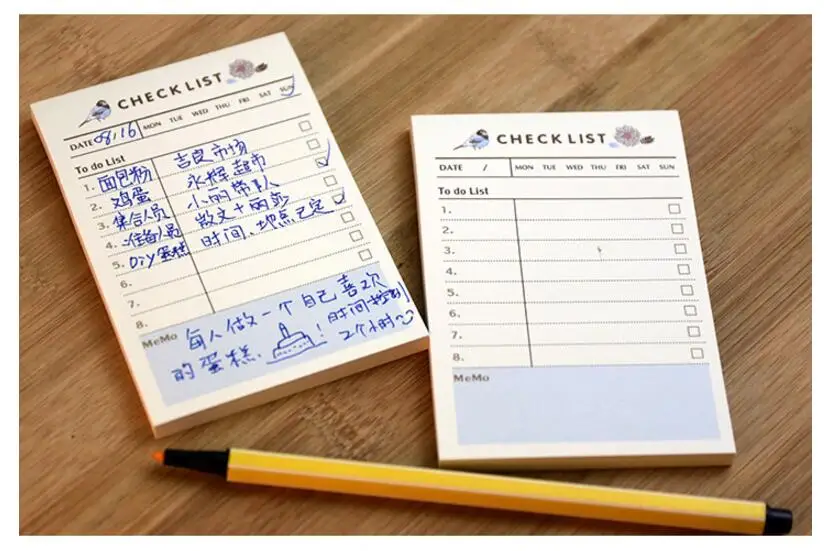 CHECKLIST
DATE 08,16 MON TUE WED THU FRI SAT SUN
To do List
1. 面包粉 吉良市场
2. 鸡蛋 永辉超市
3. 集合人员 小明带队
4. 准备人员 散文十
5. DIY蛋糕 时间、地点已定
6.
7.
8.
MeMo 每人做一个自己喜欢
的蛋糕、! 时间控制
2个小时
CHECKLIST
DATE / MON TUE WED THU FRI SAT SUN
To do List
1.
2.
3.
4.
5.
6.
7.
8.
MeMo